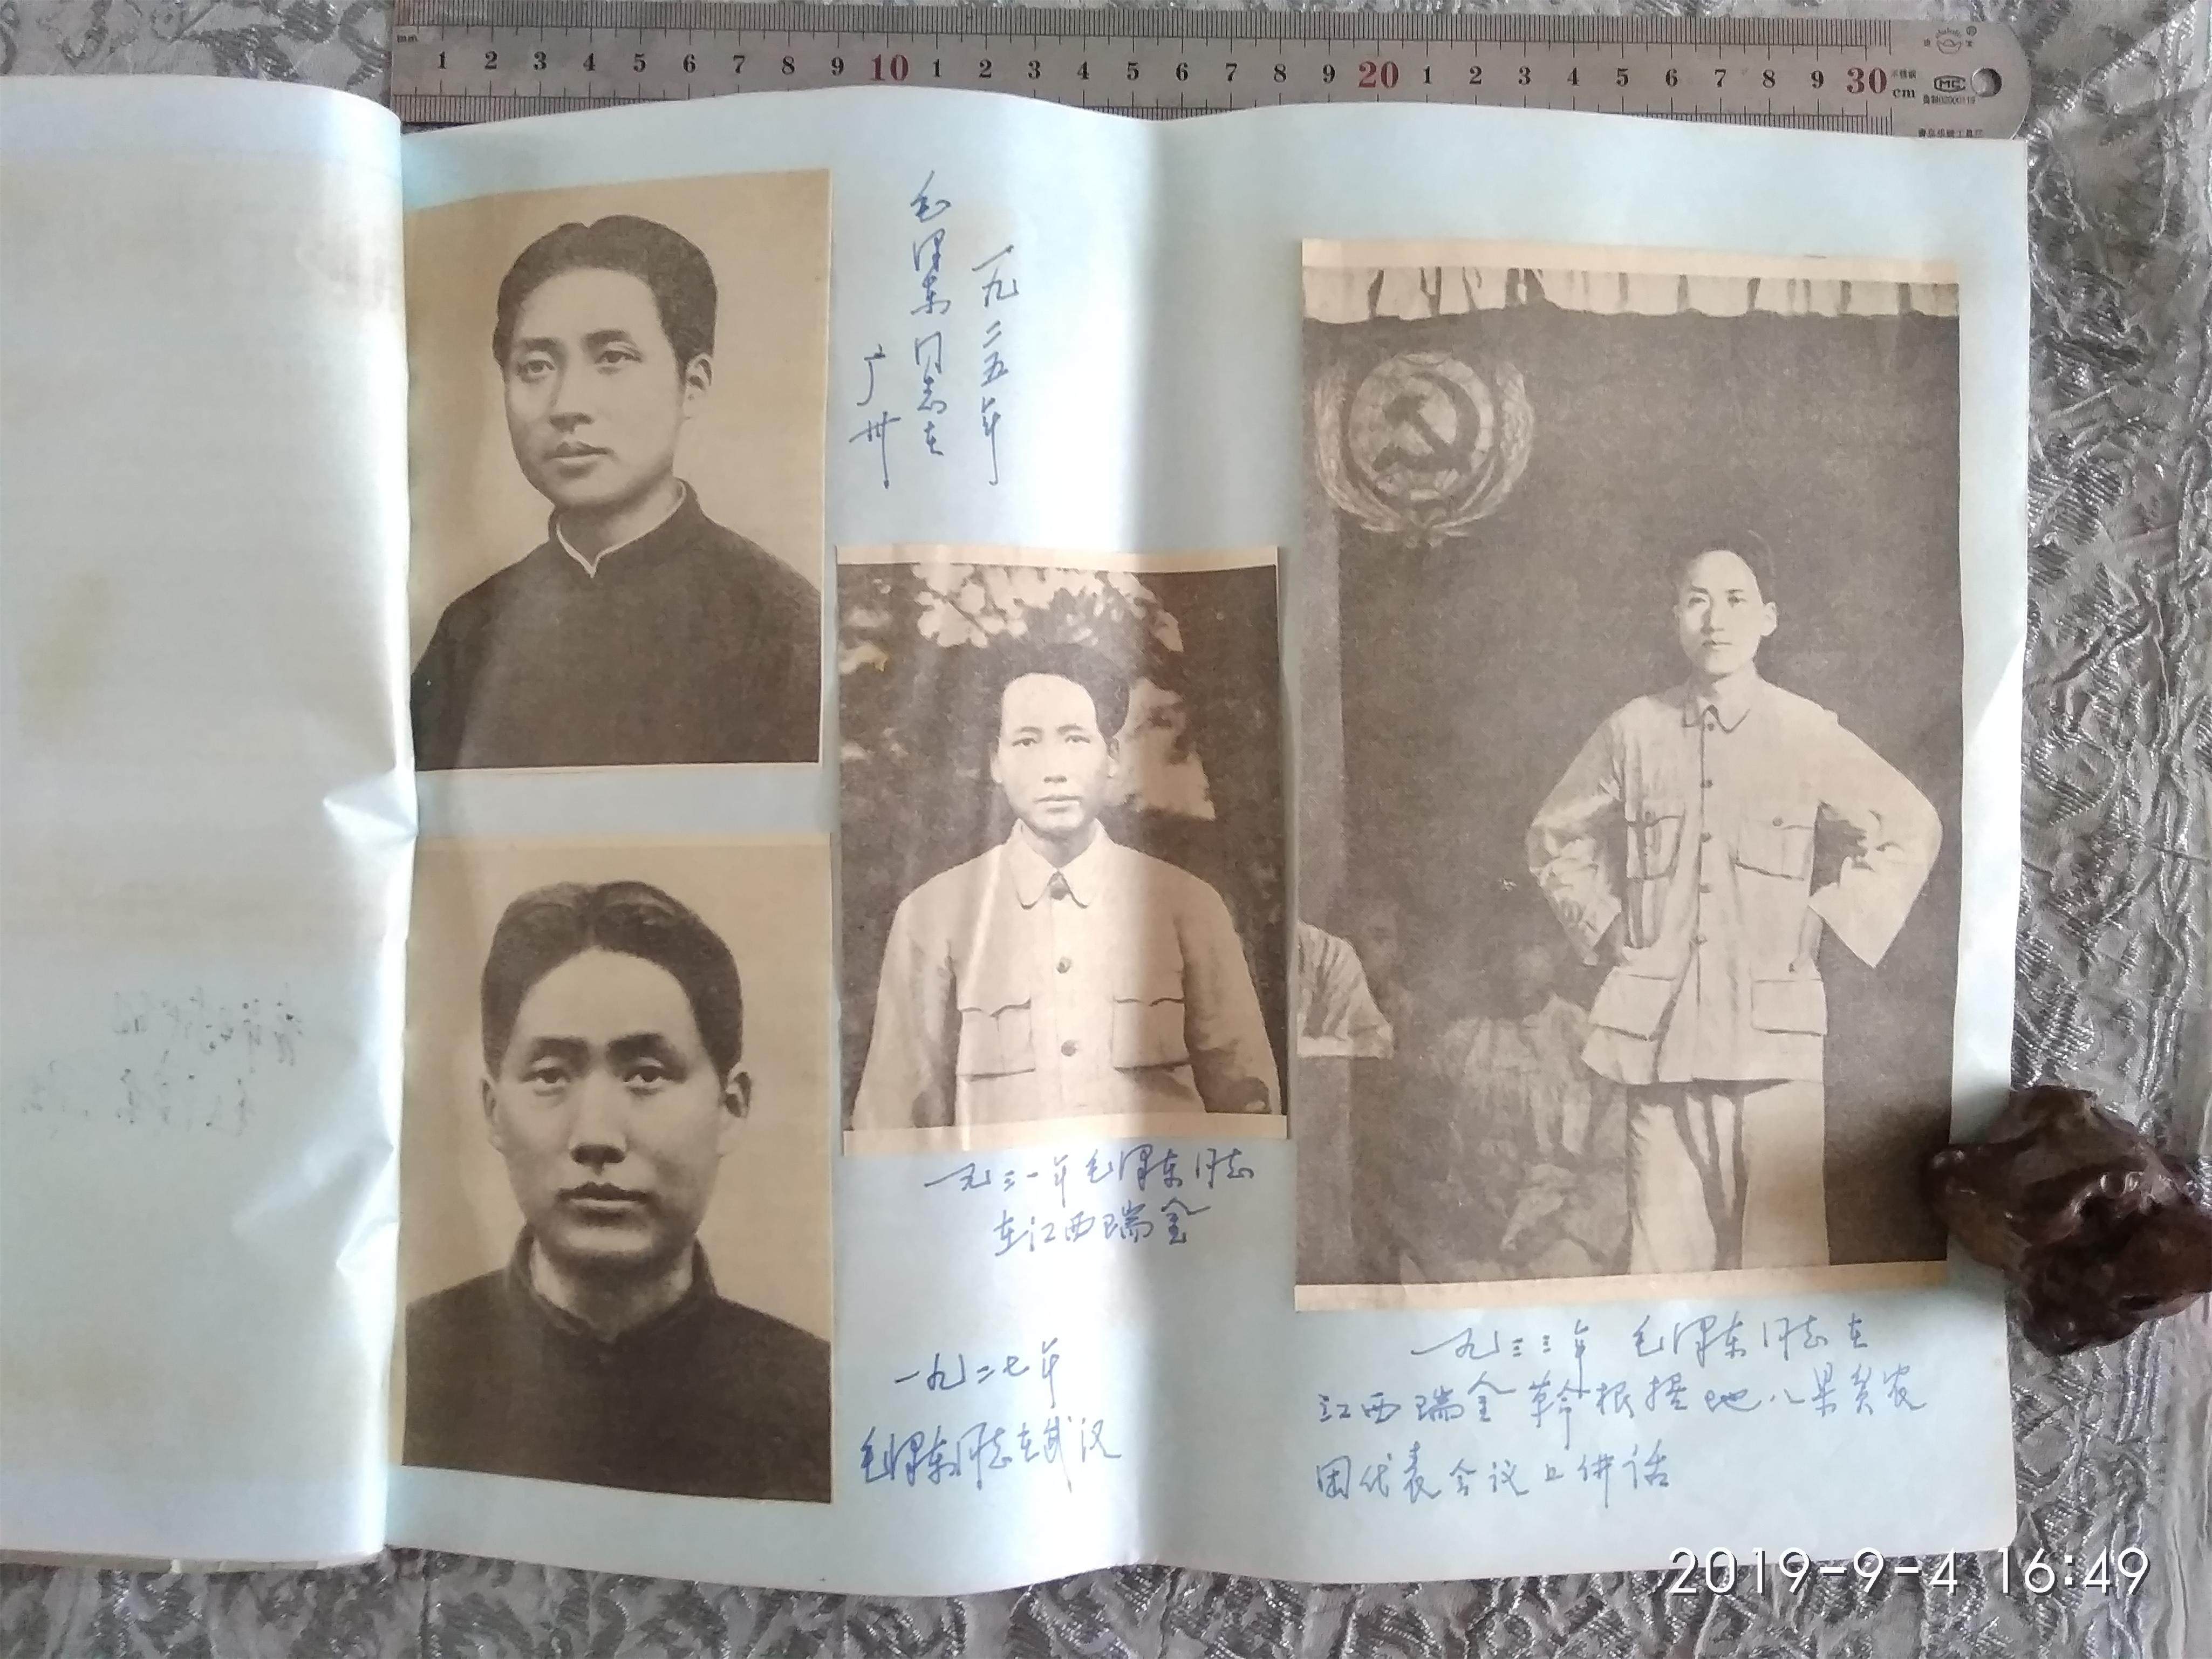 1 2 3 4 5 6 7 8 9 10 1 2 3 4 5 6 7 8 9 20 1 2 3 4 5 6 7 8 9 30
cm
MC
一九二五年
毛泽东同志在
广州
一九三一年毛泽东同志
在江西瑞金
一九二七年
毛泽东同志在武汉
一九三三年 毛泽东同志在
江西瑞金革命根据地八县贫农
团代表会议上讲话
2019-9-4 16:49